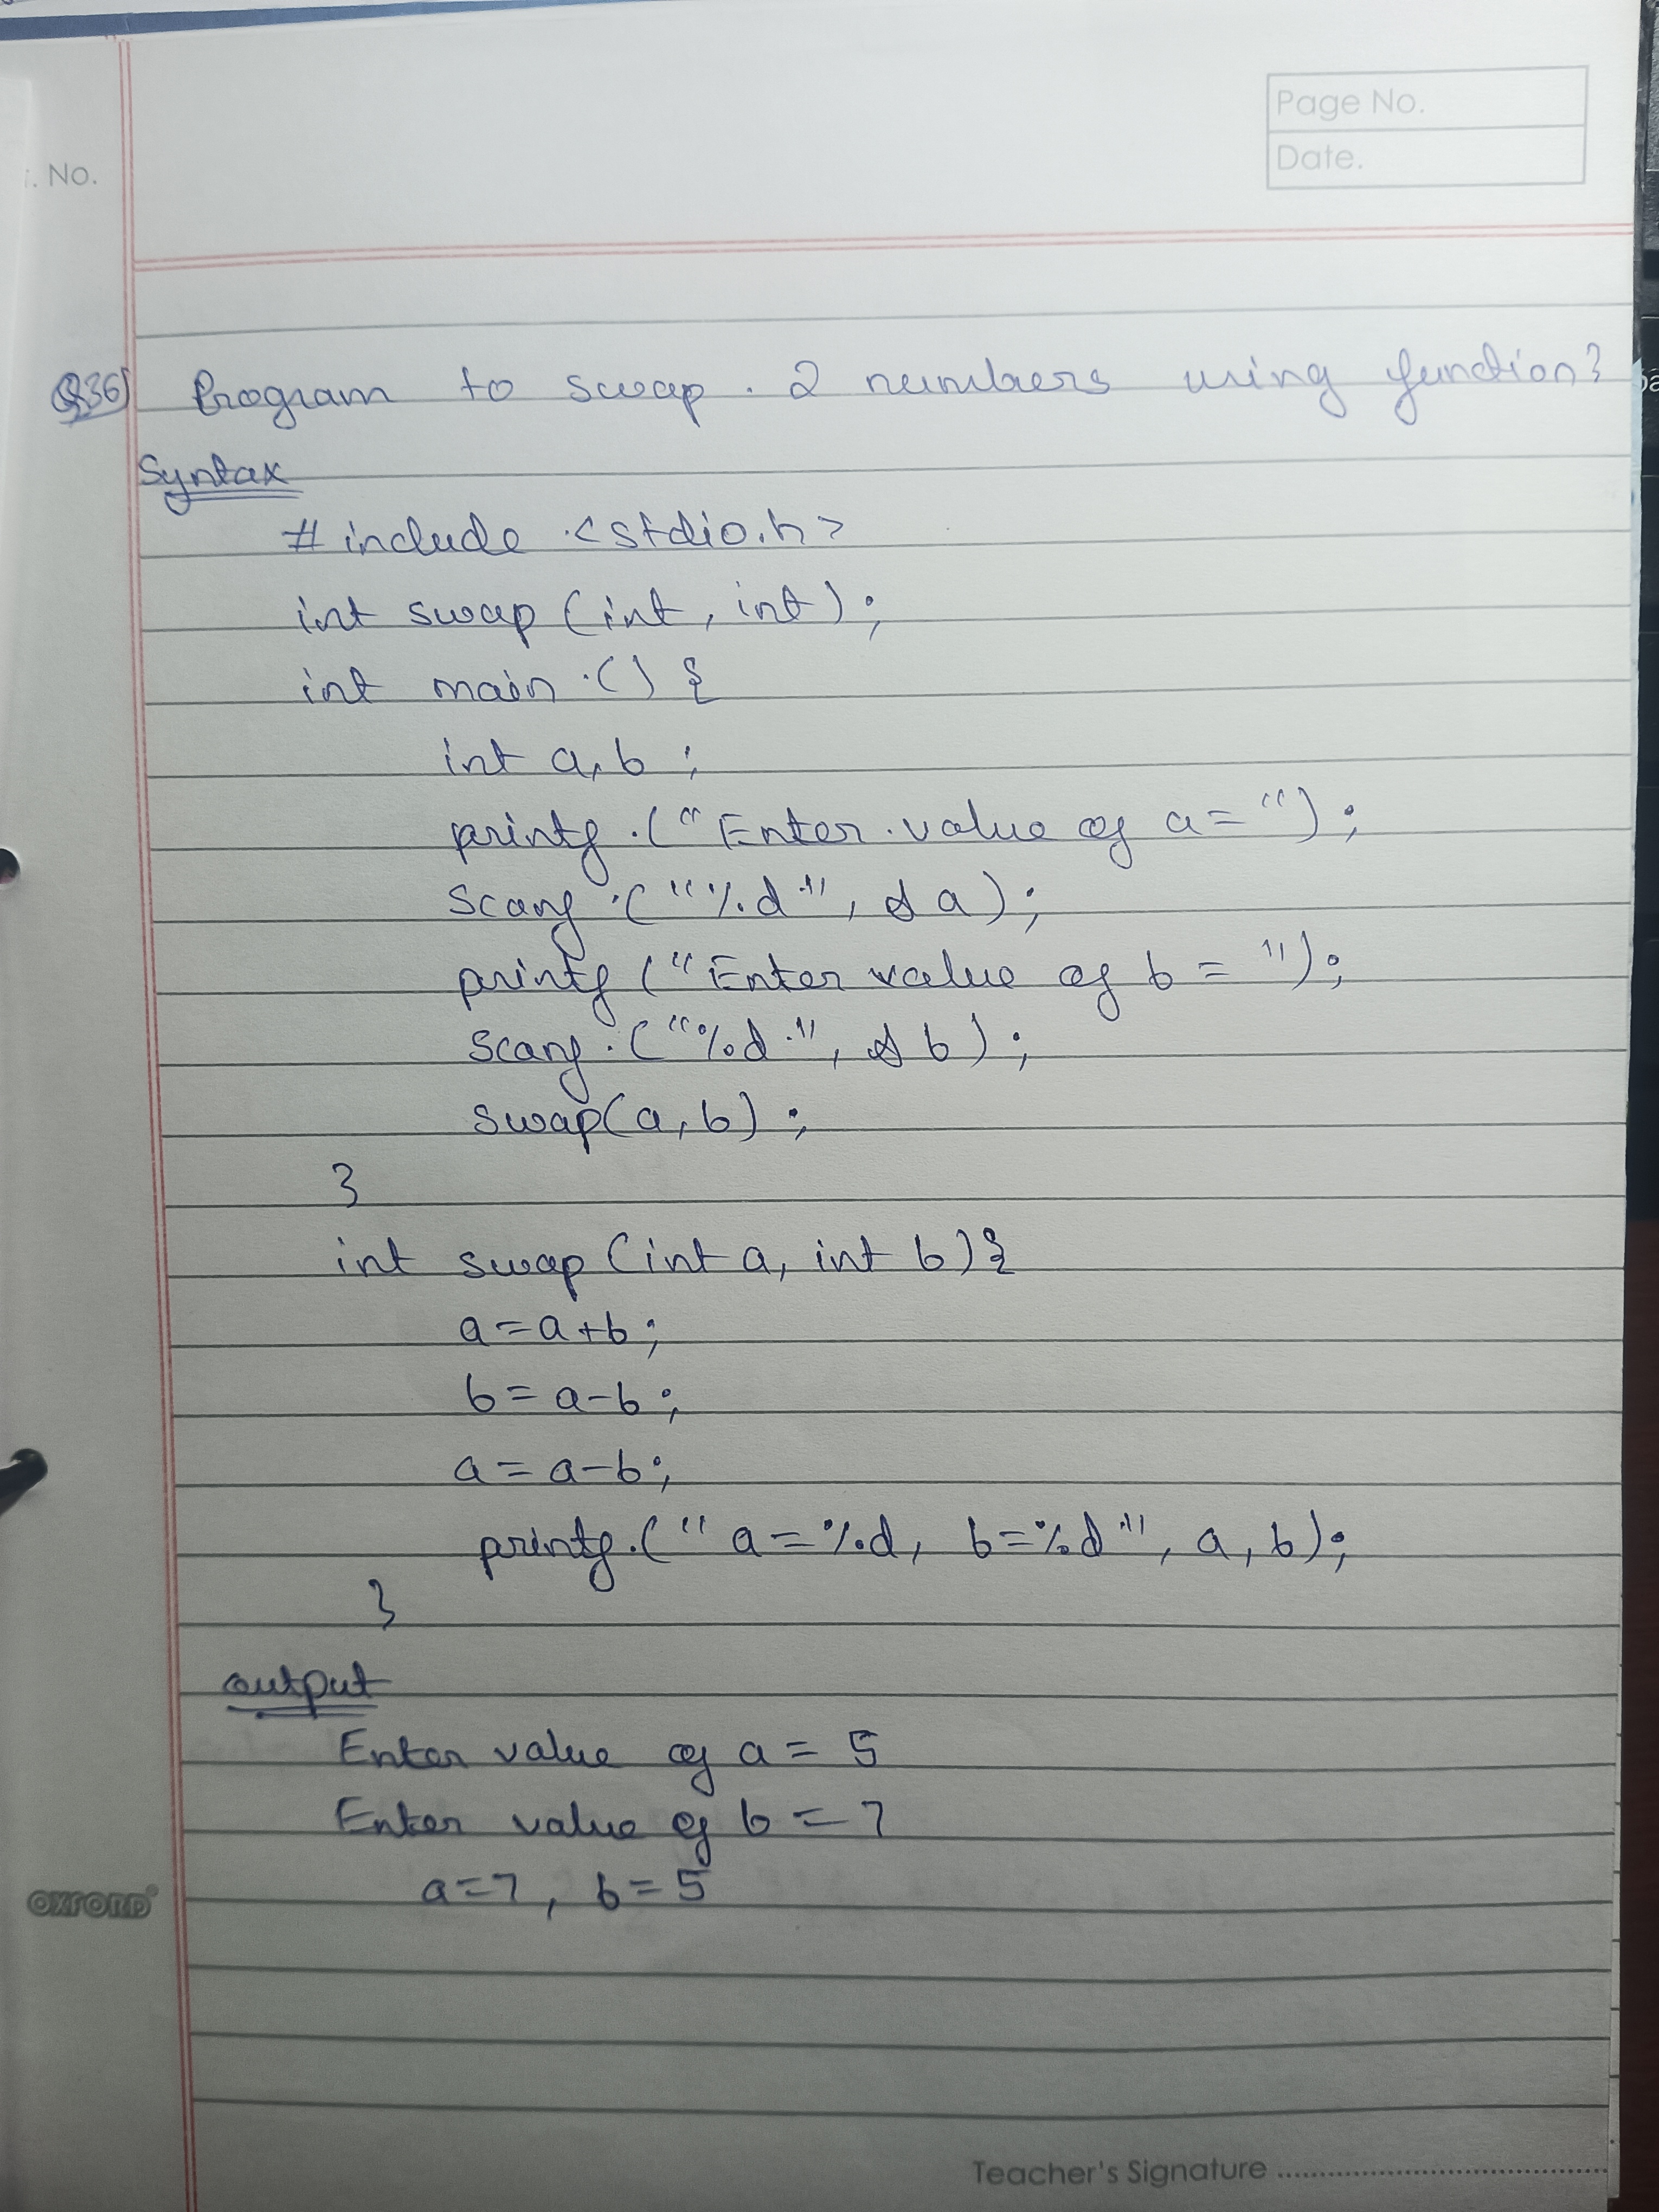 Page No.
Date.
. No.
Q36) Program to swap . 2 numbers using function?
Syntax
# include <stdio.h>
int swap (int, int);
int main () {
int a, b ;
printf ("Enter value of a= ");
scanf ("%d", &a);
printf ("Enter value of b = ");
scanf ("%d", &b);
swap(a, b) ;
}
int swap (int a, int b){
a=a+b;
b=a-b;
a=a-b;
printf ("a=%d, b=%d", a, b);
}
output
Enter value of a= 5
Enter value of b = 7
a=7, b=5
OXFORD
Teacher's Signature